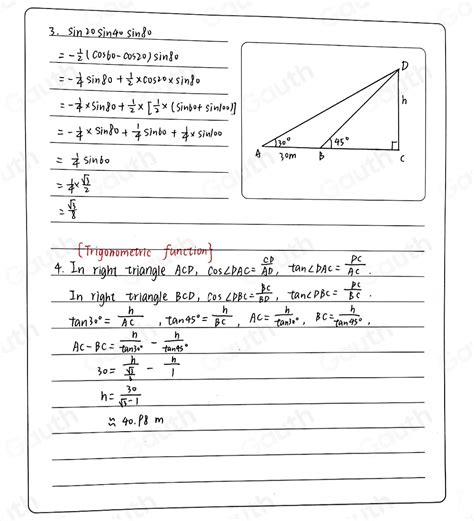 3. sin20 sin40 sin80
= -1/2 (cos60 - cos20) sin80
= -1/4 sin80 + 1/2 × cos20 × sin80
= -1/4 × sin80 + 1/2 × [1/2 × (sin60 + sin100)]
= -1/4 × sin80 + 1/4 sin60 + 1/4 × sin100
= 1/4 sin60
= 1/4 × √3/2
= √3/8
D
h
30°
45°
A
30m
B
C
{Trigonometric function}
4. In right triangle ACD, cos∠DAC = CD/AD, tan∠DAC = DC/AC.
In right triangle BCD, cos∠DBC = BC/BD, tan∠DBC = DC/BC.
tan30° = h/AC, tan45° = h/BC, AC = h/tan30°, BC = h/tan45°,
AC - BC = h/tan30° - h/tan45°
30 = h/(√3/3) - h/1
h = 30/(√3-1)
≈ 40.98 m
Gauth